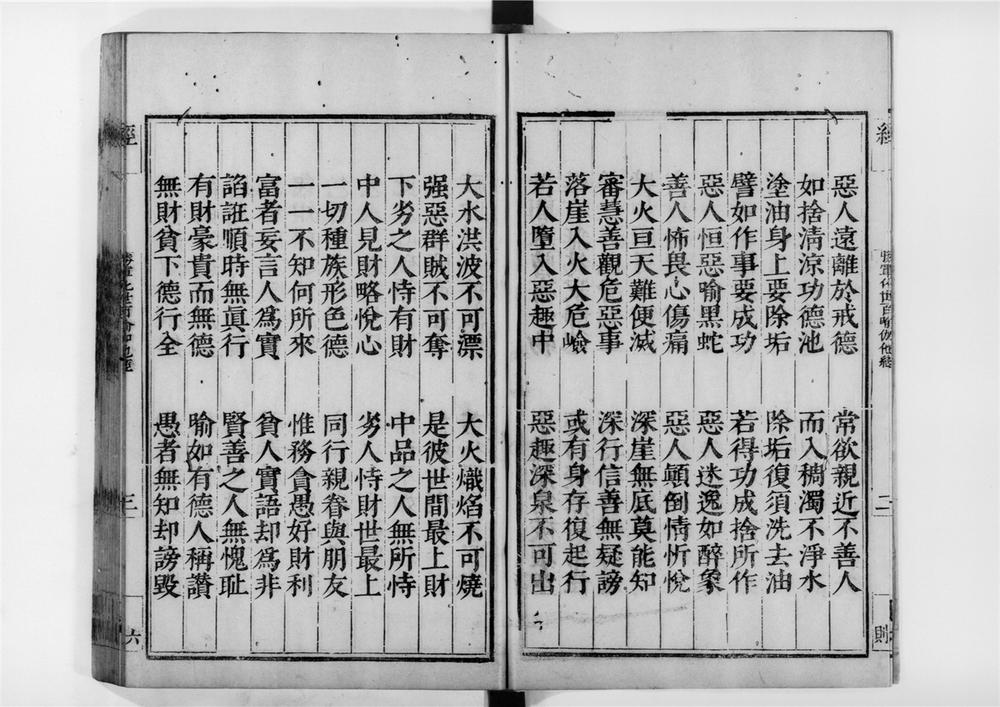 惡人遠離於戒德　常欲親近不善人
如捨清涼功德池　而入稠濁不淨水
塗油身上要除垢　除垢復須洗去油
譬如作事要成功　若得功成捨所作
惡人恒惡喻黑蛇　惡人迷逸如醉象
善人怖畏心傷痛　惡人顚倒情忻悅
大火亘天難便滅　深崖無底莫能知
審慧善觀危惡事　深行信善無疑謗
落崖入火大危嶮　或有身存復起行
若人墮入惡趣中　惡趣深泉不可出
大水洪波不可漂　大火熾焰不可燒
强惡群賊不可奪　是彼世間最上財
下劣之人恃有財　中品之人無所恃
中人見財略悅心　劣人恃財世最上
一切種族形色德　同行親眷與朋友
一一不知何所來　惟務貪愚好財利
富者妄言人爲實　貧人實語却爲非
諂誑順時無眞行　賢善之人無愧耻
有財豪貴而無德　喻如有德人稱讚
無財貧下德行全　愚者無知却謗毀
經
三
六
二
則